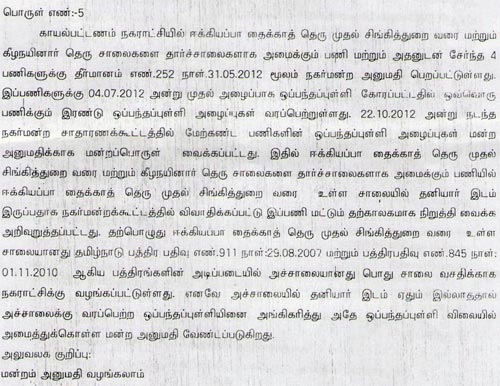 பொருள் எண்:-5
காயல்பட்டணம் நகராட்சியில் ஈக்கியப்பா தைக்காத் தெரு முதல் சிங்கித்துறை வரை மற்றும்
கீழநயினார் தெரு சாலைகளை தார்ச்சாலைகளாக அமைக்கும் பணி மற்றும் அதனுடன் சேர்ந்த 4
பணிகளுக்கு தீர்மானம் எண்.252 நாள்.31.05.2012 மூலம் நகர்மன்ற அனுமதி பெறப்பட்டுள்ளது.
இப்பணிகளுக்கு 04.07.2012 அன்று முதல் அழைப்பாக ஒப்பந்தப்புள்ளி கோரப்பட்டதில் ஒவ்வொரு
பணிக்கும் இரண்டு ஒப்பந்தப்புள்ளி அழைப்புகள் வரப்பெற்றுள்ளது. 22.10.2012 அன்று நடந்த
நகர்மன்ற சாதாரணக்கூட்டத்தில் மேற்கண்ட பணிகளின் ஒப்பந்தப்புள்ளி அழைப்புகள் மன்ற
அனுமதிக்காக மன்றப்பொருள் வைக்கப்பட்டது. இதில் ஈக்கியப்பா தைக்காத் தெரு முதல்
சிங்கித்துறை வரை மற்றும் கீழநயினார் தெரு சாலைகளை தார்ச்சாலைகளாக அமைக்கும் பணியில்
ஈக்கியப்பா தைக்காத் தெரு முதல் சிங்கித்துறை வரை உள்ள சாலையில் தனியார் இடம்
இருப்பதாக நகர்மன்றக்கூட்டத்தில் விவாதிக்கப்பட்டு இப்பணி மட்டும் தற்காலகமாக நிறுத்தி வைக்க
அறிவுறுத்தப்பட்டது. தற்பொழுது ஈக்கியப்பா தைக்காத் தெரு முதல் சிங்கித்துறை வரை உள்ள
சாலையானது தமிழ்நாடு பத்திர பதிவு எண்.911 நாள்:29.08.2007 மற்றும் பத்திரபதிவு எண்.845 நாள்:
01.11.2010 ஆகிய பத்திரங்களின் அடிப்படையில் அச்சாலையானது பொது சாலை வசதிக்காக
நகராட்சிக்கு வழங்கப்பட்டுள்ளது. எனவே அச்சாலையில் தனியார் இடம் ஏதும் இல்லாததால்
அச்சாலைக்கு வரப்பெற்ற ஒப்பந்தப்புள்ளியினை அங்கிகரித்து அதே ஒப்பந்தப்புள்ளி விலையில்
அமைத்துக்கொள்ள மன்ற அனுமதி வேண்டப்படுகிறது.
அலுவலக குறிப்பு:
மன்றம் அனுமதி வழங்கலாம்